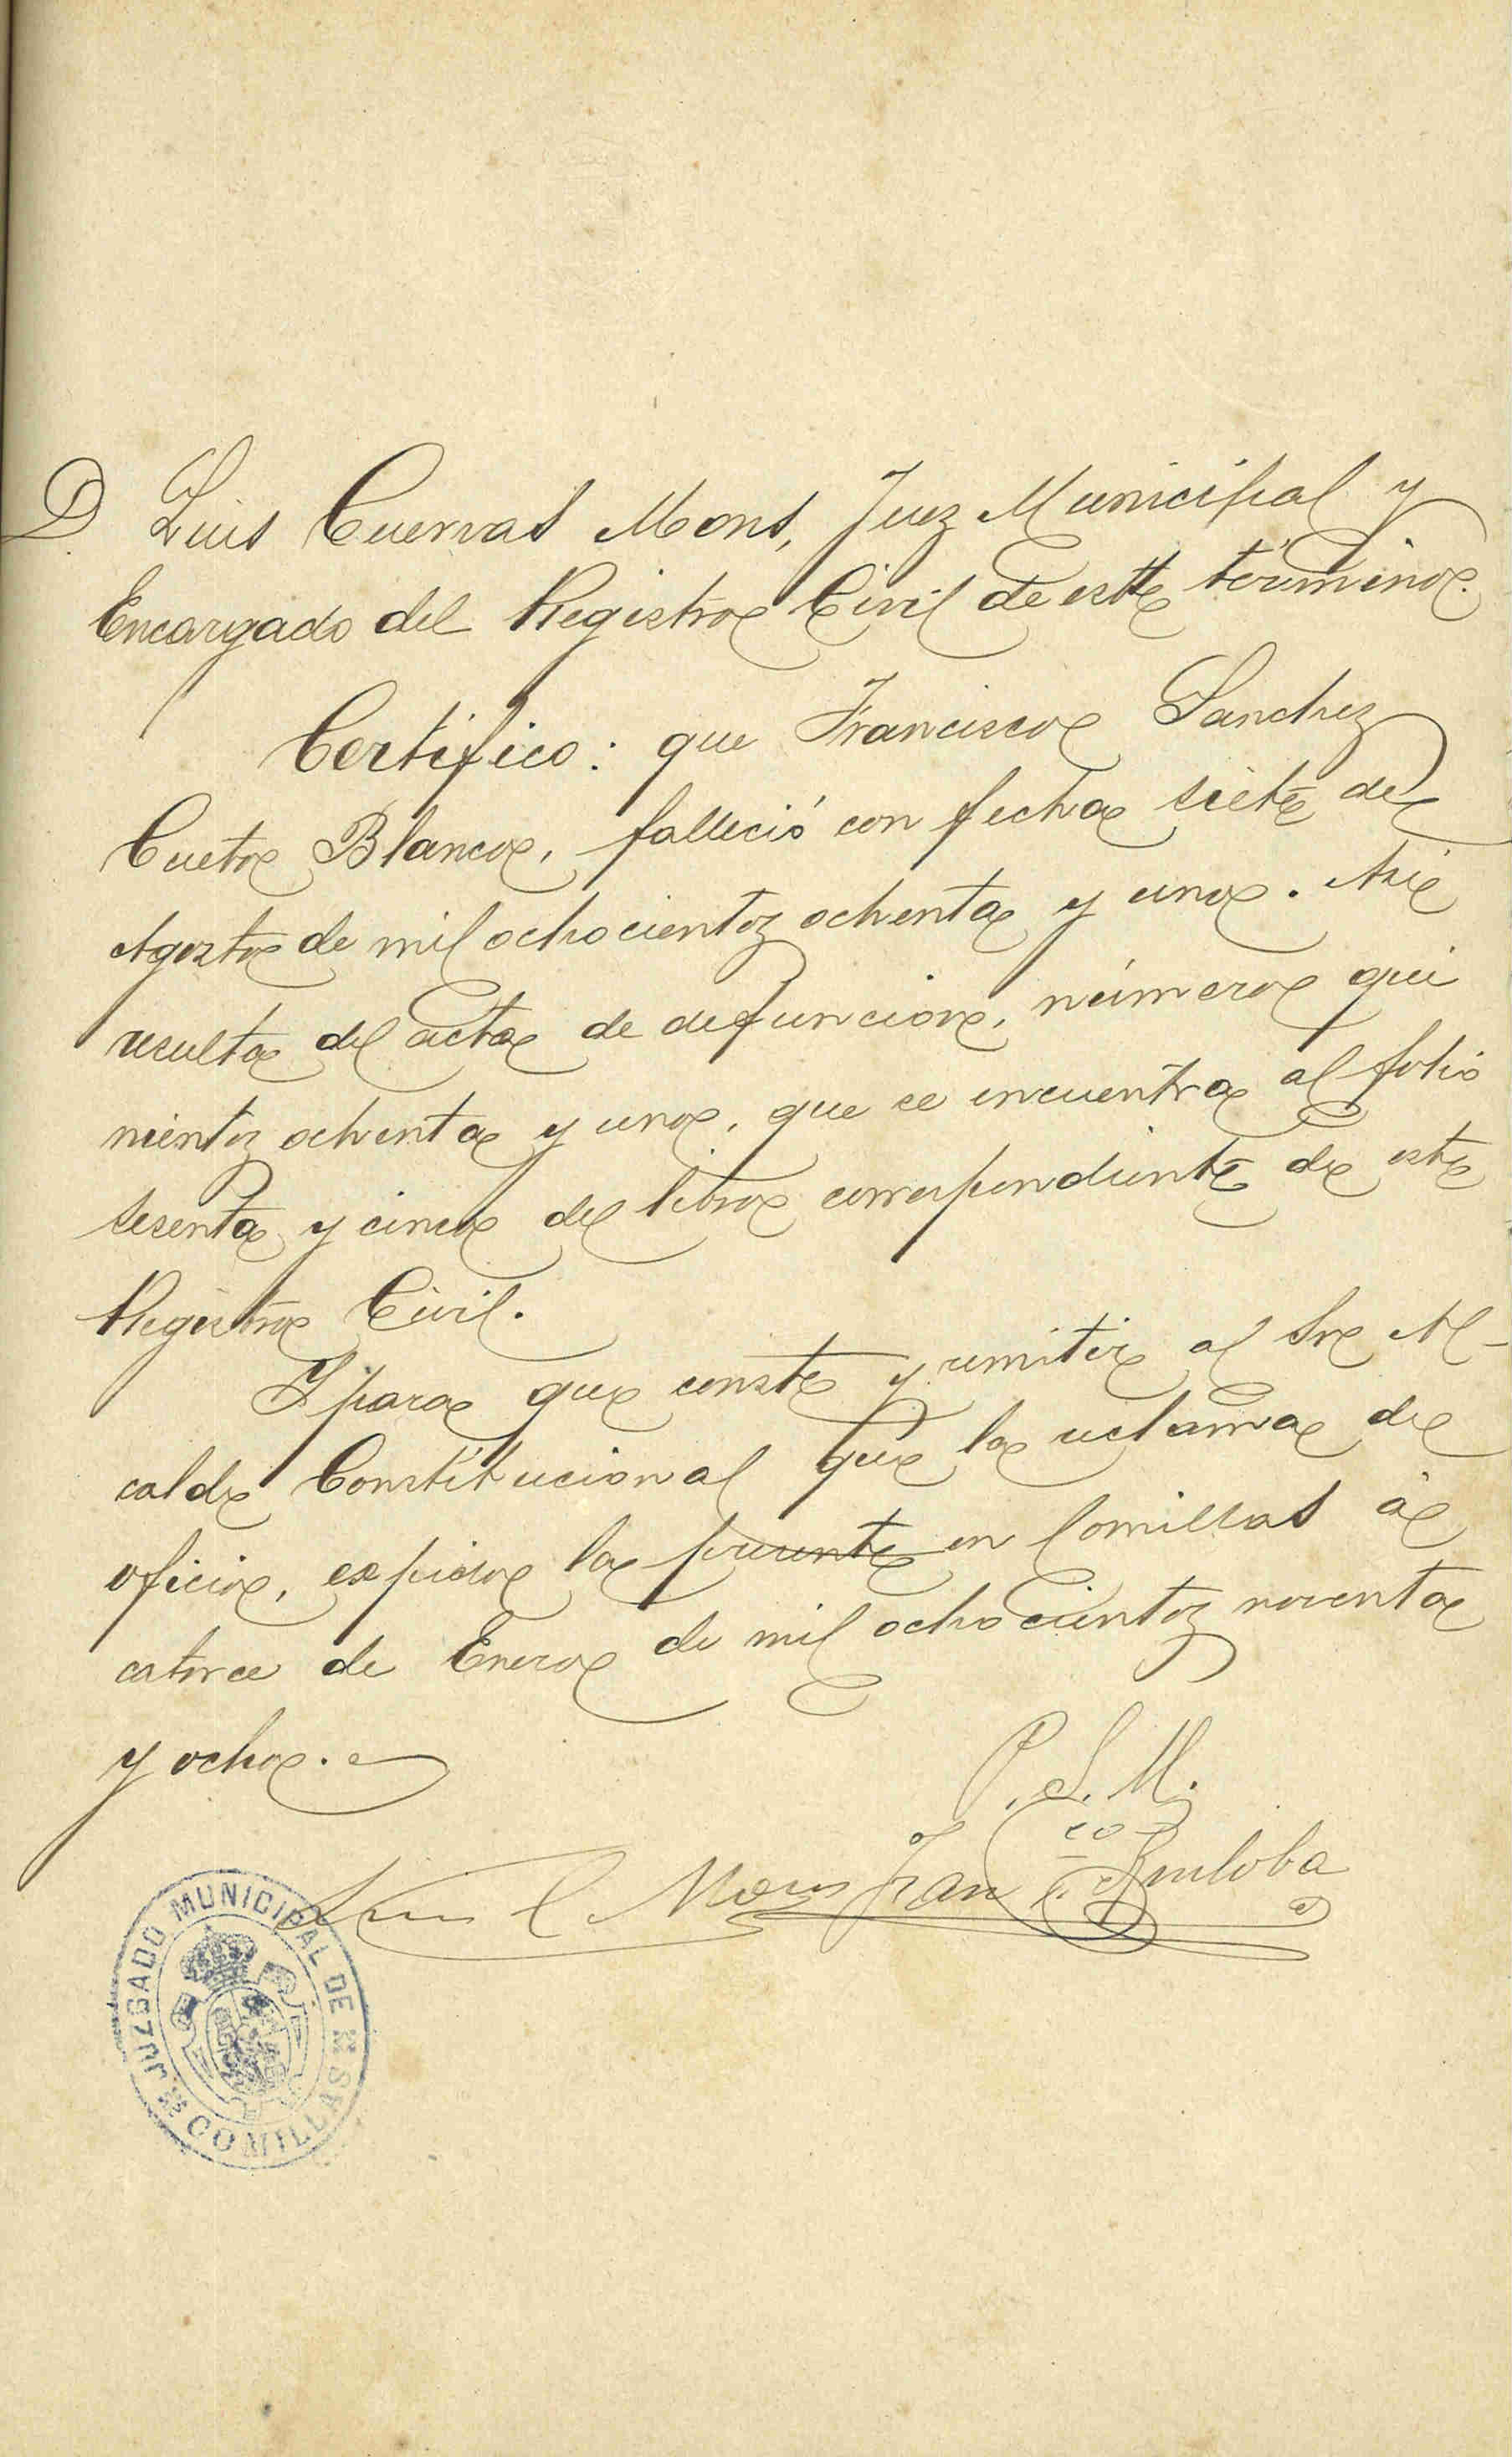 D Luis Cuervas Mons, Juez Municipal y
Encargado del Registro Civil de este término.
Certifico: que Francisco Sanchez
Cueto Blanco, falleció con fecha siete de
Agosto de mil ochocientos ochenta y uno. Asi
resulta del acta de defuncion, número qui
nientos ochenta y uno, que se encuentra al folio
sesenta y cinco del libro correspondiente de este
Registro Civil.
Y para que conste y remitir al Sr Al-
calde Constitucional que la reclama de
oficio, expido la presente en Comillas á
catorce de Enero de mil ochocientos noventa
y ocho.
P. S. M.
Luis C Mons Fran co
JUZGADO MUNICIPAL DE COMILLAS